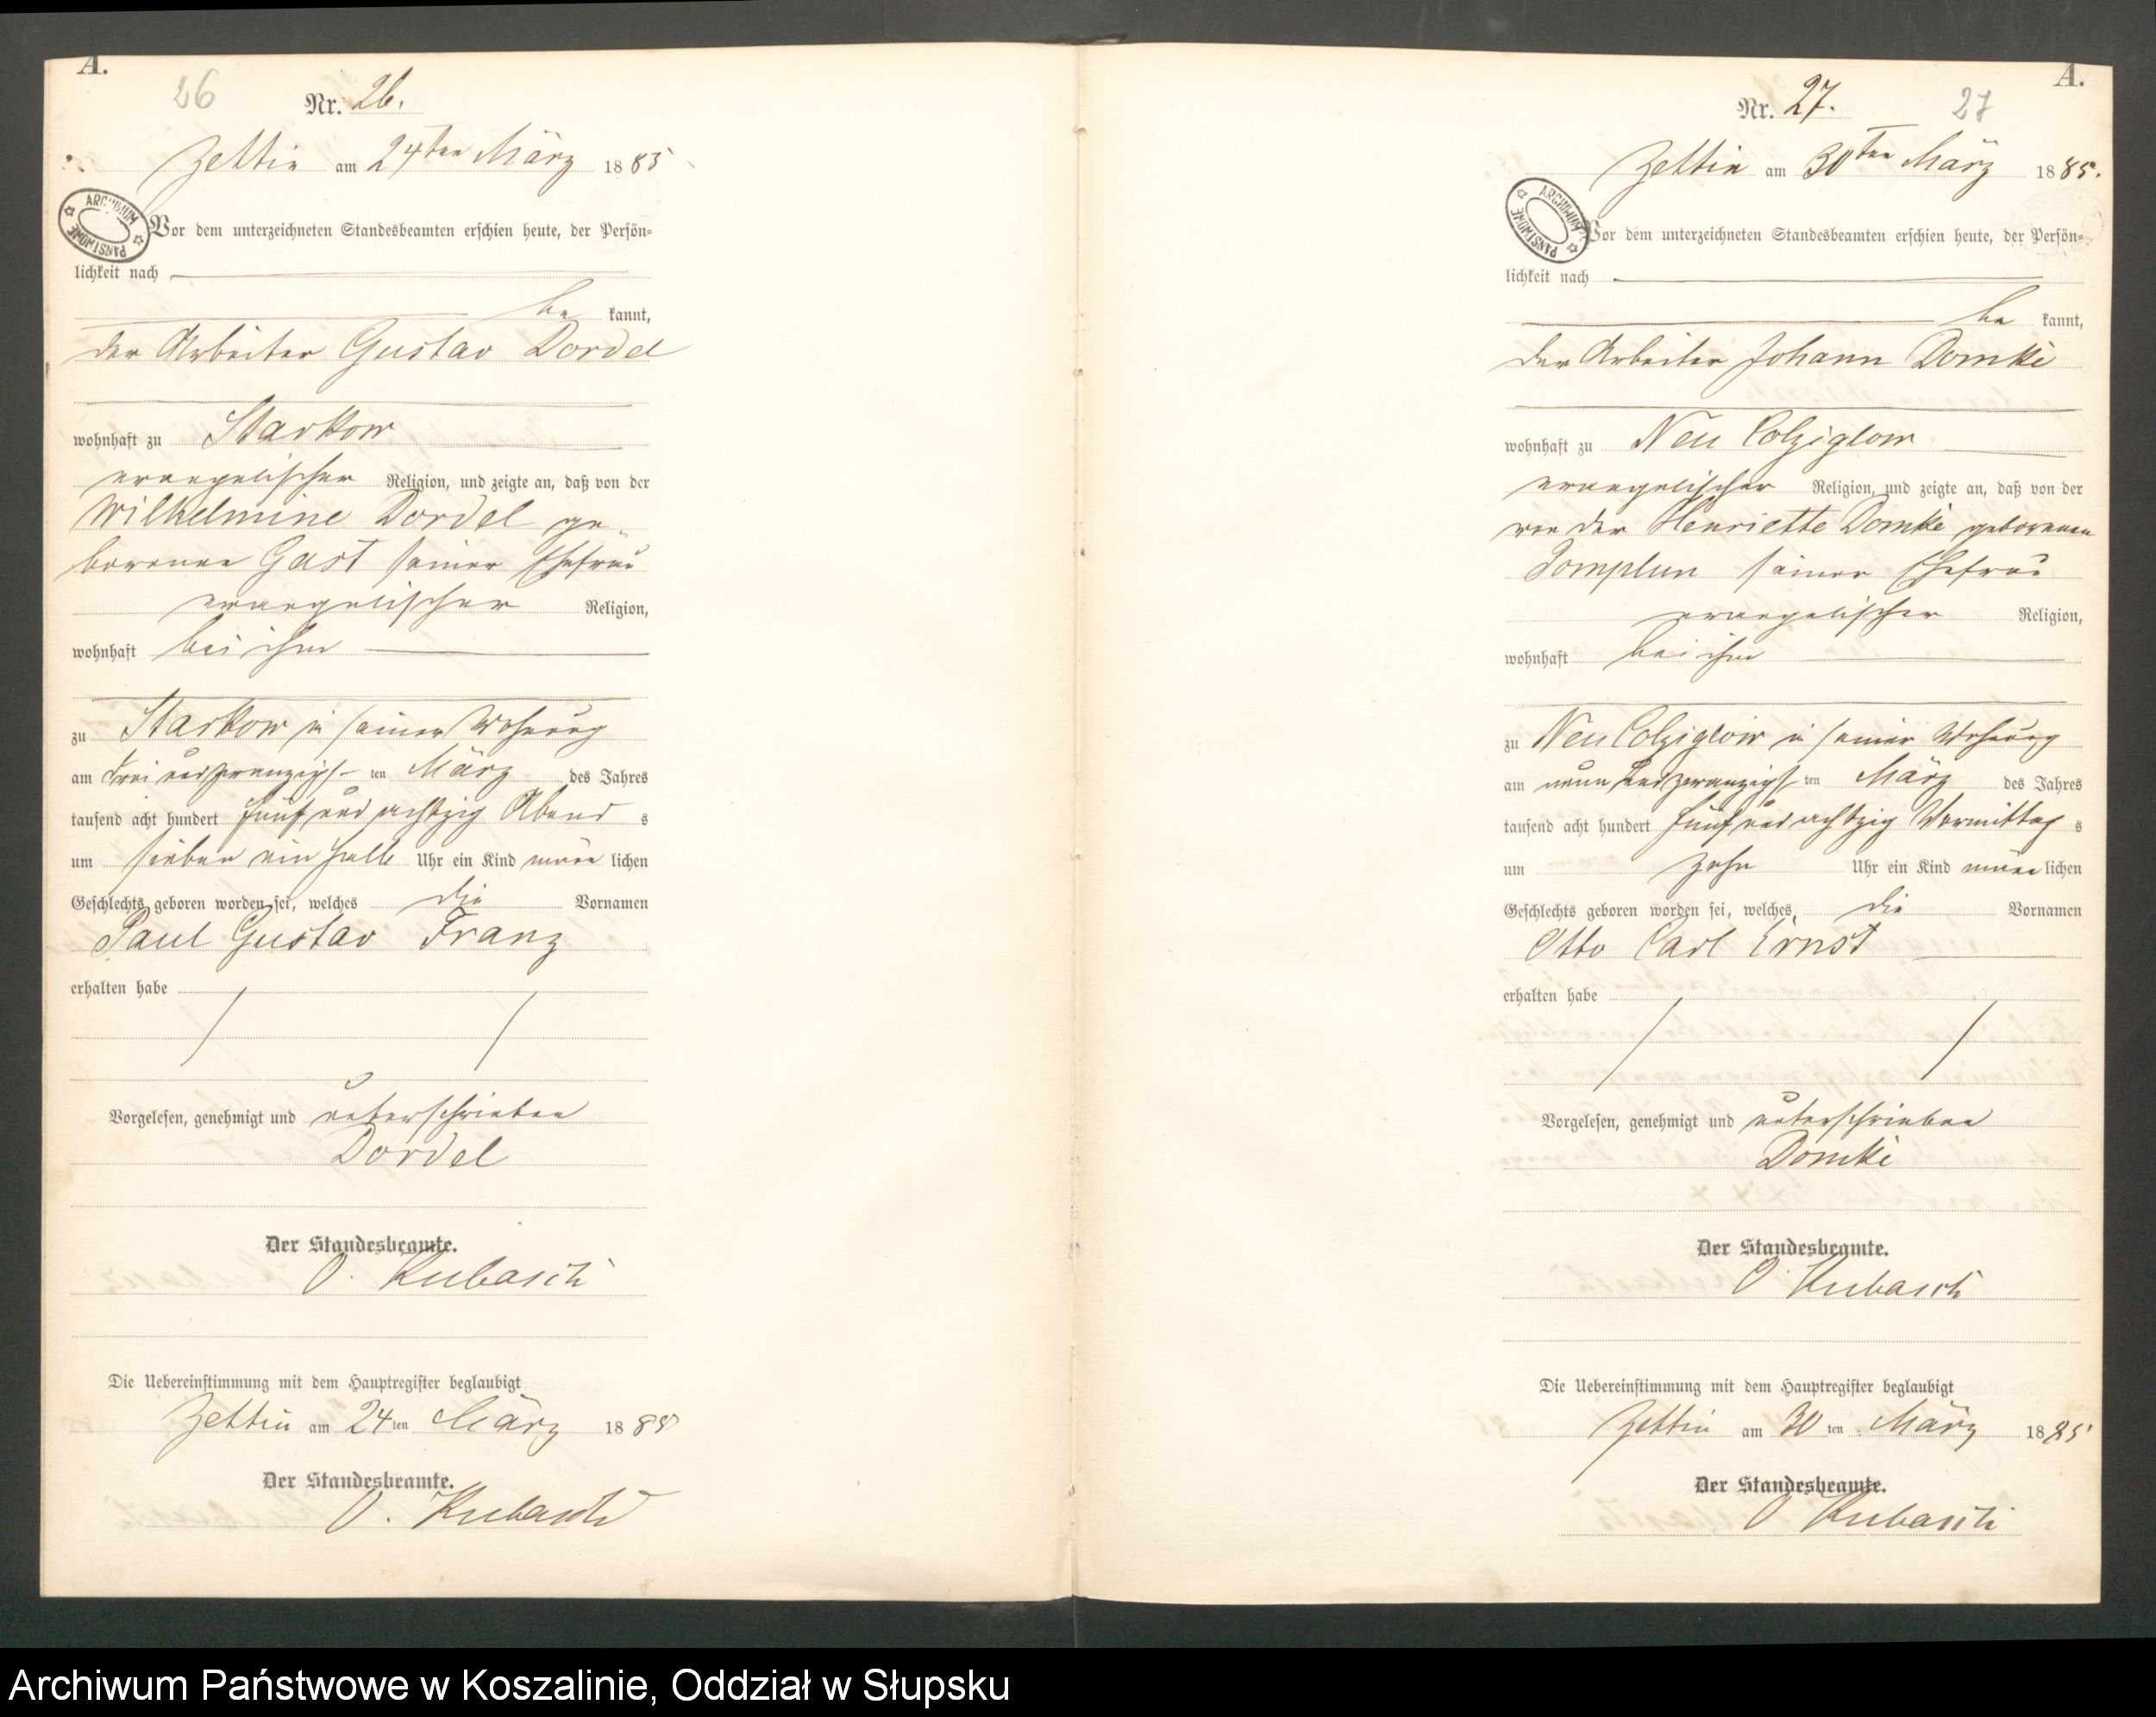 A.
26
Nr. 26.
Zettin am 24ten März 1885
ARCHIWUM PAŃSTWOWE
Vor dem unterzeichneten Standesbeamten erschien heute, der Persön=
lichkeit nach
be kannt,
der Arbeiter Gustav Dordel
wohnhaft zu Starkow
evangelischer Religion, und zeigte an, daß von der
Wilhelmine Dordel ge-
borenen Gast seiner Ehefrau
evangelischer Religion,
wohnhaft bei ihm
zu Starkow in seiner Wohnung
am drei und zwanzigsten März des Jahres
tausend acht hundert fünf und achtzig Abends
um sieben ein halb Uhr ein Kind männlichen
Geschlechts geboren worden sei, welches die Vornamen
Paul Gustav Franz
erhalten habe
Vorgelesen, genehmigt und unterschrieben
Dordel
Der Standesbeamte.
O. Kubasch
Die Uebereinstimmung mit dem Hauptregister beglaubigt
Zettin am 24ten März 1885
Der Standesbeamte.
O. Kubasch
A.
27
Nr. 27.
Zettin am 30ten März 1885.
ARCHIWUM PAŃSTWOWE
Vor dem unterzeichneten Standesbeamten erschien heute, der Persön=
lichkeit nach
be kannt,
der Arbeiter Johann Domke
wohnhaft zu Neu Colziglow
evangelischer Religion, und zeigte an, daß von der
von der Henriette Domke geborenen
Pomplun seiner Ehefrau
evangelischer Religion,
wohnhaft bei ihm
zu Neu Colziglow in seiner Wohnung
am neun und zwanzigsten März des Jahres
tausend acht hundert fünf und achtzig Vormittags
um zehn Uhr ein Kind männlichen
Geschlechts geboren worden sei, welches die Vornamen
Otto Carl Ernst
erhalten habe
Vorgelesen, genehmigt und unterschrieben
Domke
Der Standesbeamte.
O Kubasch
Die Uebereinstimmung mit dem Hauptregister beglaubigt
Zettin am 30ten März 1885
Der Standesbeamte.
O Kubasch
Archiwum Państwowe w Koszalinie, Oddział w Słupsku